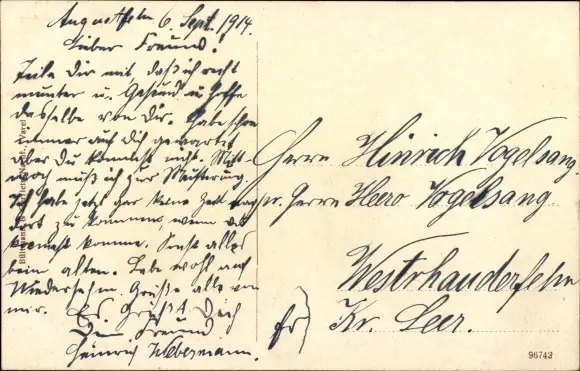 Augustfehn 6. Sept. 1914.
Lieber Freund!
Teile Dir mit, daß ich recht
munter u. Gesund u hoffe
dasselbe von dir. Habe schon
immer auf dich gewartet
aber du kommst nicht. Mitt-
woch muß ich zur Musterung.
Ich habe jetzt gar keine Zeit
dort zu kommen, wenn du
komme. Sonst alles
beim alten. Lebe wohl auf
Wiedersehn. Grüße alle von
mir. Es Grüßt Dich
Dein Freund
Heinrich Webermann.
Herrn Hinrich Vogelsang.
pr. Herrn Heero Vogelsang
Westrhauderfehn
Kr. Leer.
96742